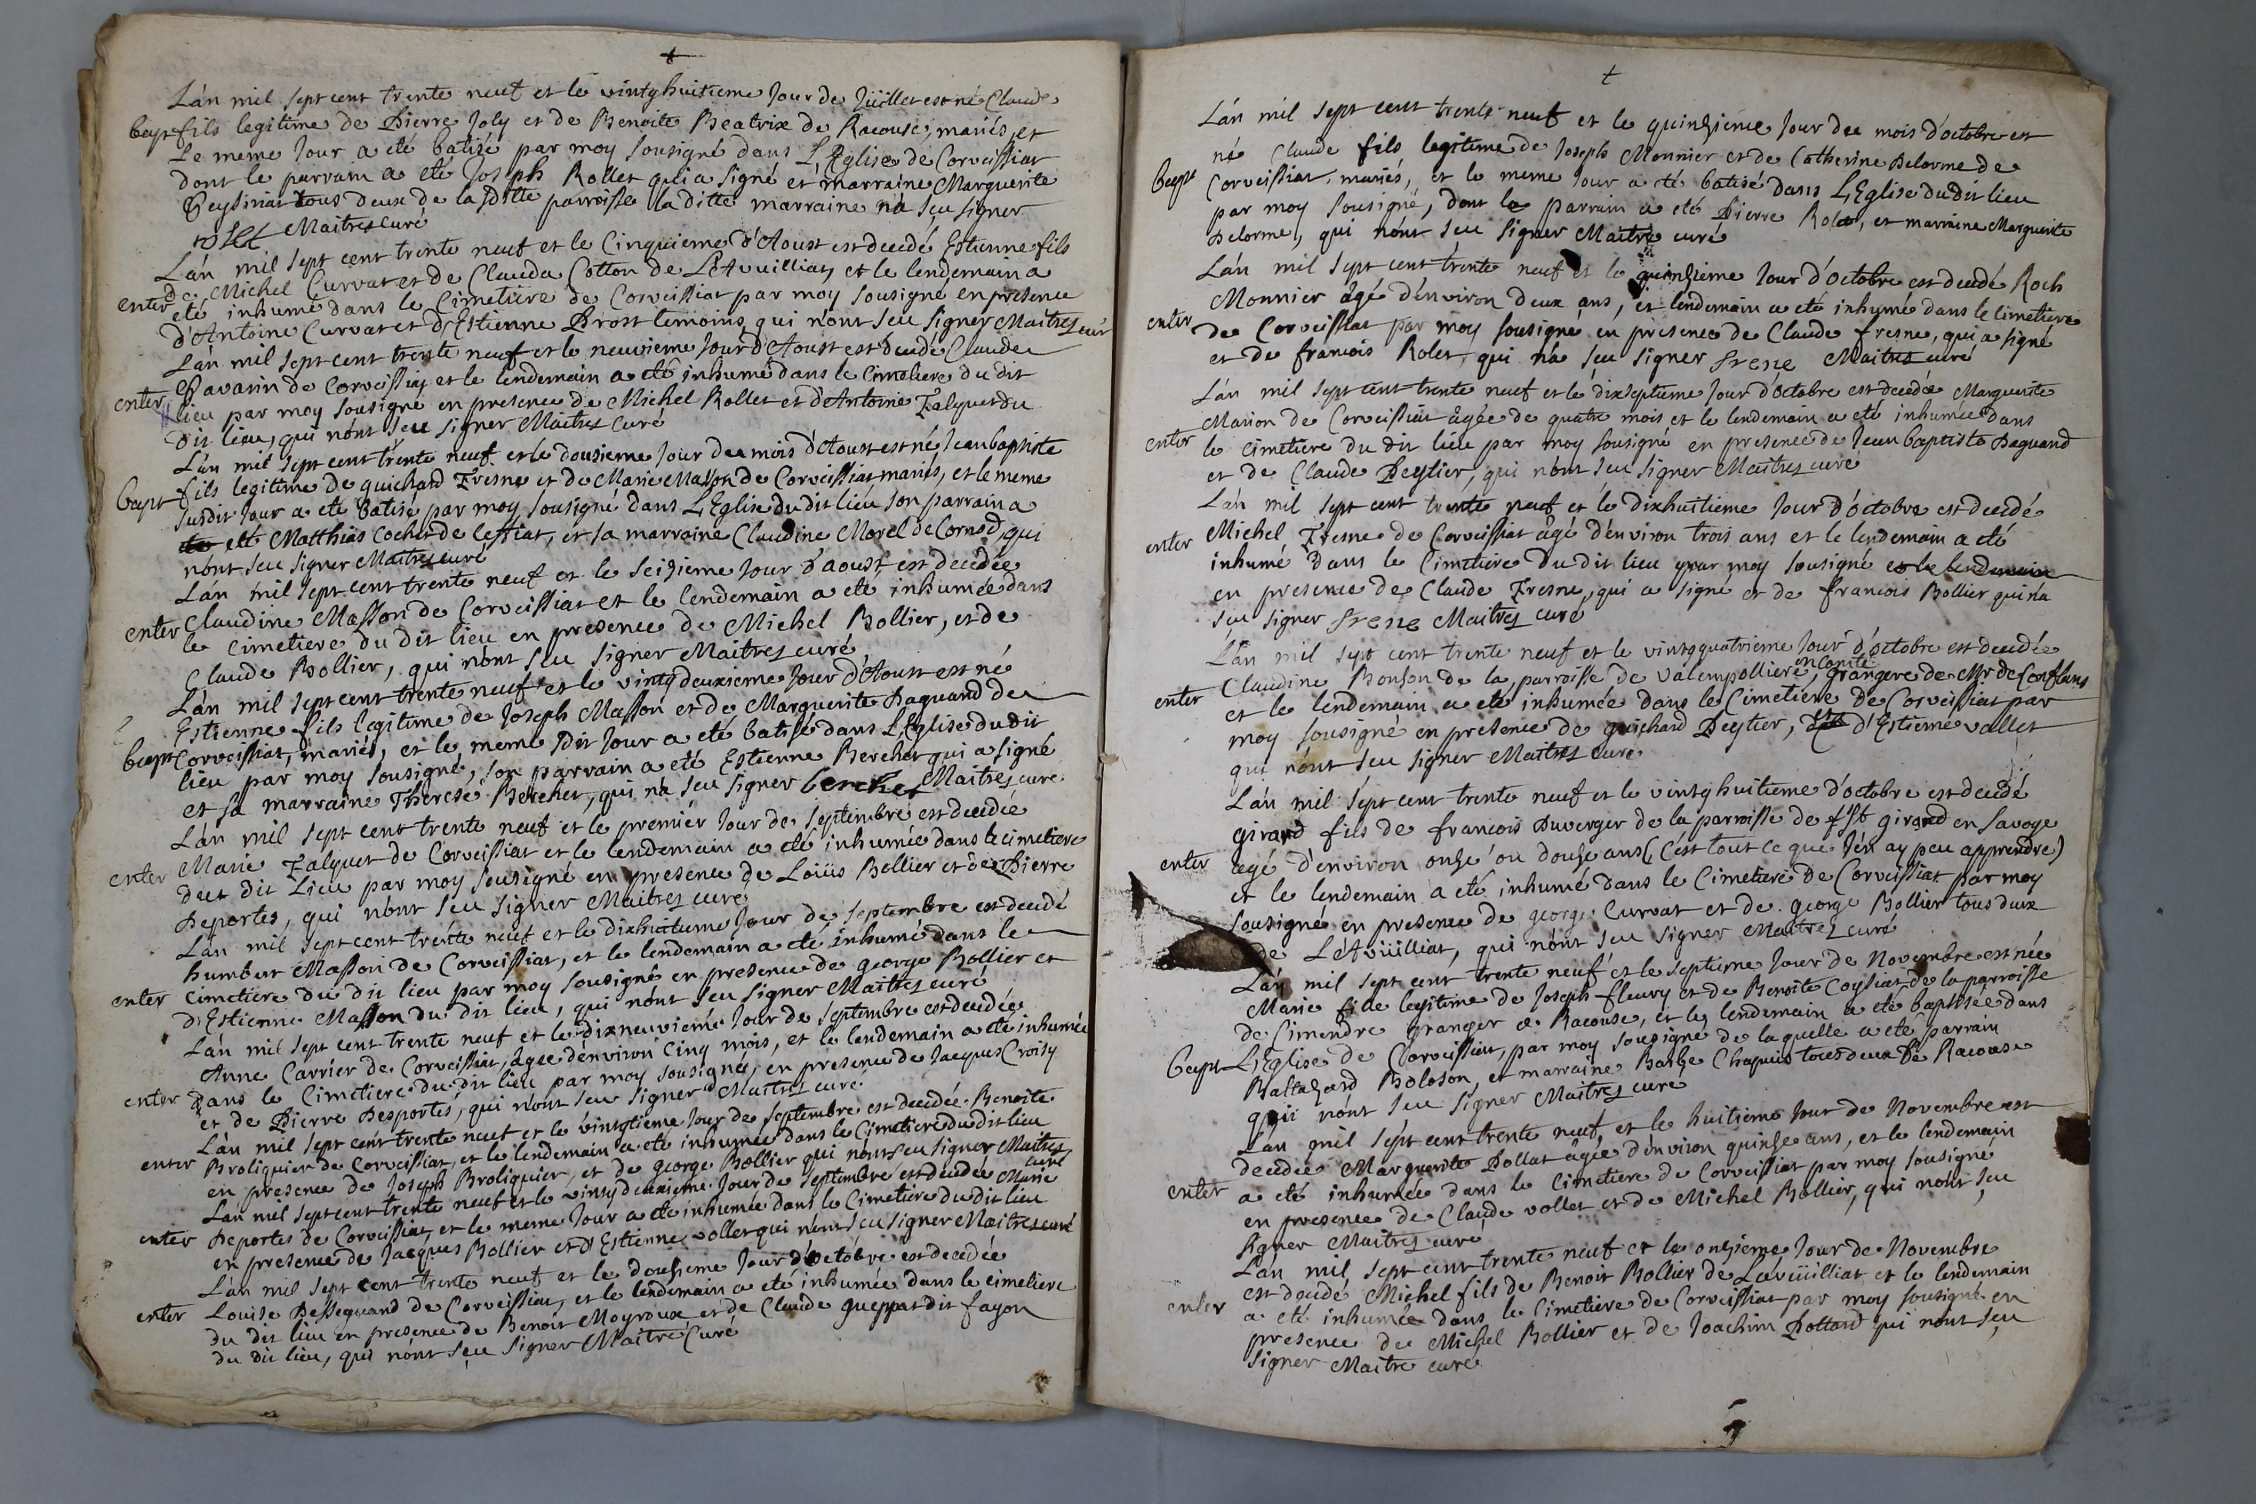 L'an mil sept cent trente neuf et le vintghuitieme Jour de Juillet est né Claude
bapt fils legitime de Pierre Joly et de Benoite Beatrix de Racouse, mariés, et
Le meme Jour a eté batisé par moy sousigné dans L'Eglise de Corveissiat
dont le parrain a eté Joseph Rollet qui a signé et marraine Marguerite
tous deux de laditte parroisse laditte marraine n'a sçu signer
rolet Maitres curé
L'an mil sept cent trente neuf et le Cinquieme d'Aoust est decedé Estienne fils
de Michel Curvat et de Clauda Cotton de L'Avuilliat, et le lendemain a
enter eté inhumé dans le Cimetiere de Corveissiat par moy sousigné en presence
d'Antoine Curvat et d'Estienne Brost temoins qui n'ont sçu signer Maitres curé
L'an mil sept cent trente neuf et le neuvieme Jour d'Aoust est decedé Claude
Pavarin de Corveissiat et le lendemain a eté inhumé dans le Cimetiere du dit
enter lieu par moy sousigné en presence de Michel Rollet et d'Antoine Falquet du
dit lieu, qui n'ont sçu signer Maitres Curé
L'an mil sept cent trente neuf et le dousieme Jour du mois d'Aoust est né Jean baptiste
fils legitime de guichard Fresne et de Marie Masson de Corveissiat, mariés, et le meme
bapt susdit Jour a eté batisé par moy sousigné dans L'Eglise du dit lieu son parrain a
eté Matthias Cochet de Cessiat, et sa marraine Claudine Morel de Cornod, qui
n'ont sçu signer Maitres curé
L'an mil sept cent trente neuf et le seizieme Jour d'aoust est decedée
enter Claudine Masson de Corveissiat et le lendemain a eté inhumée dans
le Cimetiere du dit lieu en presence de Michel Bollier, et de
Claude Bollier, qui n'ont sçu signer Maitres curé
L'an mil sept cent trente neuf et le vintgdeuxieme Jour d'Aoust est né
Estienne fils legitime de Joseph Masson et de Marguerite Daguand de
bapt Corveissiat, mariés, et le meme dit Jour a eté batisé dans L'Eglise du dit
lieu par moy sousigné, son parrain a eté Estienne Berchet qui a signé
et sa marraine Therese Berchet, qui n'a sçu signer berchet Maitres curé
L'an mil sept cent trente neuf et le premier Jour de septembre est decedée
enter Marie Falquet de Corveissiat et le lendemain a eté inhumée dans le cimetiere
du dit Lieu par moy sousigné en presence de Loüis Bollier et de Pierre
Deportes, qui n'ont sçu signer Maitres curé
L'an mil sept cent trente neuf et le dixhuitieme Jour de septembre est decedé
humbert Masson de Corveissiat, et le lendemain a eté inhumé dans le
enter Cimetiere du dit lieu par moy sousigné en presence de george Bollier et
d'Estienne Masson du dit lieu, qui n'ont sçu signer Maitres curé
L'an mil sept cent trente neuf et le dixneuvieme Jour de septembre est decedée
Anne Carrier de Corveissiat, agée d'environ cinq mois, et le lendemain a eté inhumée
enter dans le Cimetiere du dit lieu par moy sousigné, en presence de Jacques Croisy
et de Pierre Desportes, qui n'ont sçu signer Maitres curé
L'an mil sept cent trente neuf et le vingtieme Jour de septembre est decedée Benoite
enter Broliquier de Corveissiat, et le lendemain a eté inhumée dans le Cimetiere du dit lieu
en presence de Joseph Broliquier, et de george Bollier qui n'ont sçu signer Maitres curé
L'an mil sept cent trente neuf et le vintgdeuxieme Jour de septembre est decedée Marie
enter Deportes de Corveissiat, et le meme Jour a eté inhumée dans le Cimetiere du dit lieu
en presence de Jacques Bollier et d'Estienne vollet qui n'ont sçu signer Maitres curé
L'an mil sept cent trente neuf et le dousieme Jour d'octobre est decedée
enter Louise Dessequand de Corveissiat, et le lendemain a eté inhumée dans le cimetiere
du dit lieu en presence de Benoit Moyroux et de Claude gueppat dit fayon
du dit lieu, qui n'ont sçu signer Maitre Curé
L'an mil sept cent trente neuf et le quinzieme Jour du mois d'octobre est
né Claude fils legitime de Joseph Monnier et de Catherine Delorme de
bapt Corveissiat, mariés, et le meme Jour a eté batisé dans L'Eglise du dit lieu
par moy sousigné, dont le parrain a eté Pierre Rolet, et marraine Marguerite
Delorme, qui n'ont sçu signer Maitre curé
L'an mil sept cent trente neuf et le quinzieme Jour d'octobre est decedé Roch
Monnier âgé d'environ deux ans, et lendemain a eté inhumé dans le cimetiere
enter de Corveissiat par moy sousigné en presence de Claude fresne, qui a signé
et de francois Rolet, qui n'a sçu signer frene Maitres curé
L'an mil sept cent trente neuf et le dixseptieme Jour d'octobre est decedée Marguerite
Marion de Corveissiat âgée de quatre mois et le lendemain a eté inhumée dans
enter le Cimetiere du dit lieu par moy sousigné en presence de Jean baptiste Daguand
et de Claude Peytier, qui n'ont sçu signer Maitres curé
L'an mil sept cent trente neuf et le dixhuitieme Jour d'octobre est decedé
enter Michel Fresne de Corveissiat âgé d'environ trois ans et le lendemain a eté
inhumé dans le Cimetiere du dit lieu par moy sousigné et le lendemain
en presence de Claude Fresne, qui a signé et de francois Bollier qui n'a
sçu signer frene Maitres curé
L'an mil sept cent trente neuf et le vintgquatrieme Jour d'octobre est decedée
Claudine Bonson de la parroisse de Valempolliere en Comté, grangere de Mr de Conflans
enter et le lendemain a eté inhumée dans le Cimetiere de Corveissiat par
moy sousigné en presence de guichard Peytier, et d'Estienne vollet
qui n'ont sçu signer Maitres curé
L'an mil sept cent trente neuf et le vintghuitieme d'octobre est decedé
girard fils de francois Duverger de la parroisse de St girard en Savoye
enter agé d'environ onze ou douze ans (C'est tout ce que J'en ay peu apprendre)
et le lendemain a eté inhumé dans le Cimetiere de Corveissiat par moy
sousigné en presence de george Curvat et de george Bollier tous deux
de L'Avüilliat, qui n'ont sçu signer Maitres curé
L'an mil sept cent trente neuf et le septieme Jour de Novembre est née
Marie fille legitime de Joseph fleury et de Benoite Coysiat de la parroisse
de Cimendre granger a Racouse, et le lendemain a eté baptisée dans
bapt L'Eglise de Corveissiat, par moy sousigné de laquelle a eté parrain
Baltazard Boloson, et marraine Barbe Chapuis tous deux de Racouse
qui n'ont sçu signer Maitres curé
L'an mil sept cent trente neuf et le huitieme Jour de Novembre est
decedée Marguerite Dollat âgée d'environ quinze ans, et le lendemain
enter a eté inhumée dans le Cimetiere de Corveissiat par moy sousigné
en presence de Claude vollet et de Michel Bollier, qui n'ont sçu
signer Maitres curé
L'an mil sept cent trente neuf et le onzieme Jour de Novembre
est decedé Michel fils de Benoit Bollier de Lavüilliat et le lendemain
enter a eté inhumé dans le Cimetiere de Corveissiat par moy sousigné en
presence de Michel Bollier et de Joachim Dottard qui n'ont sçu
signer Maitre curé